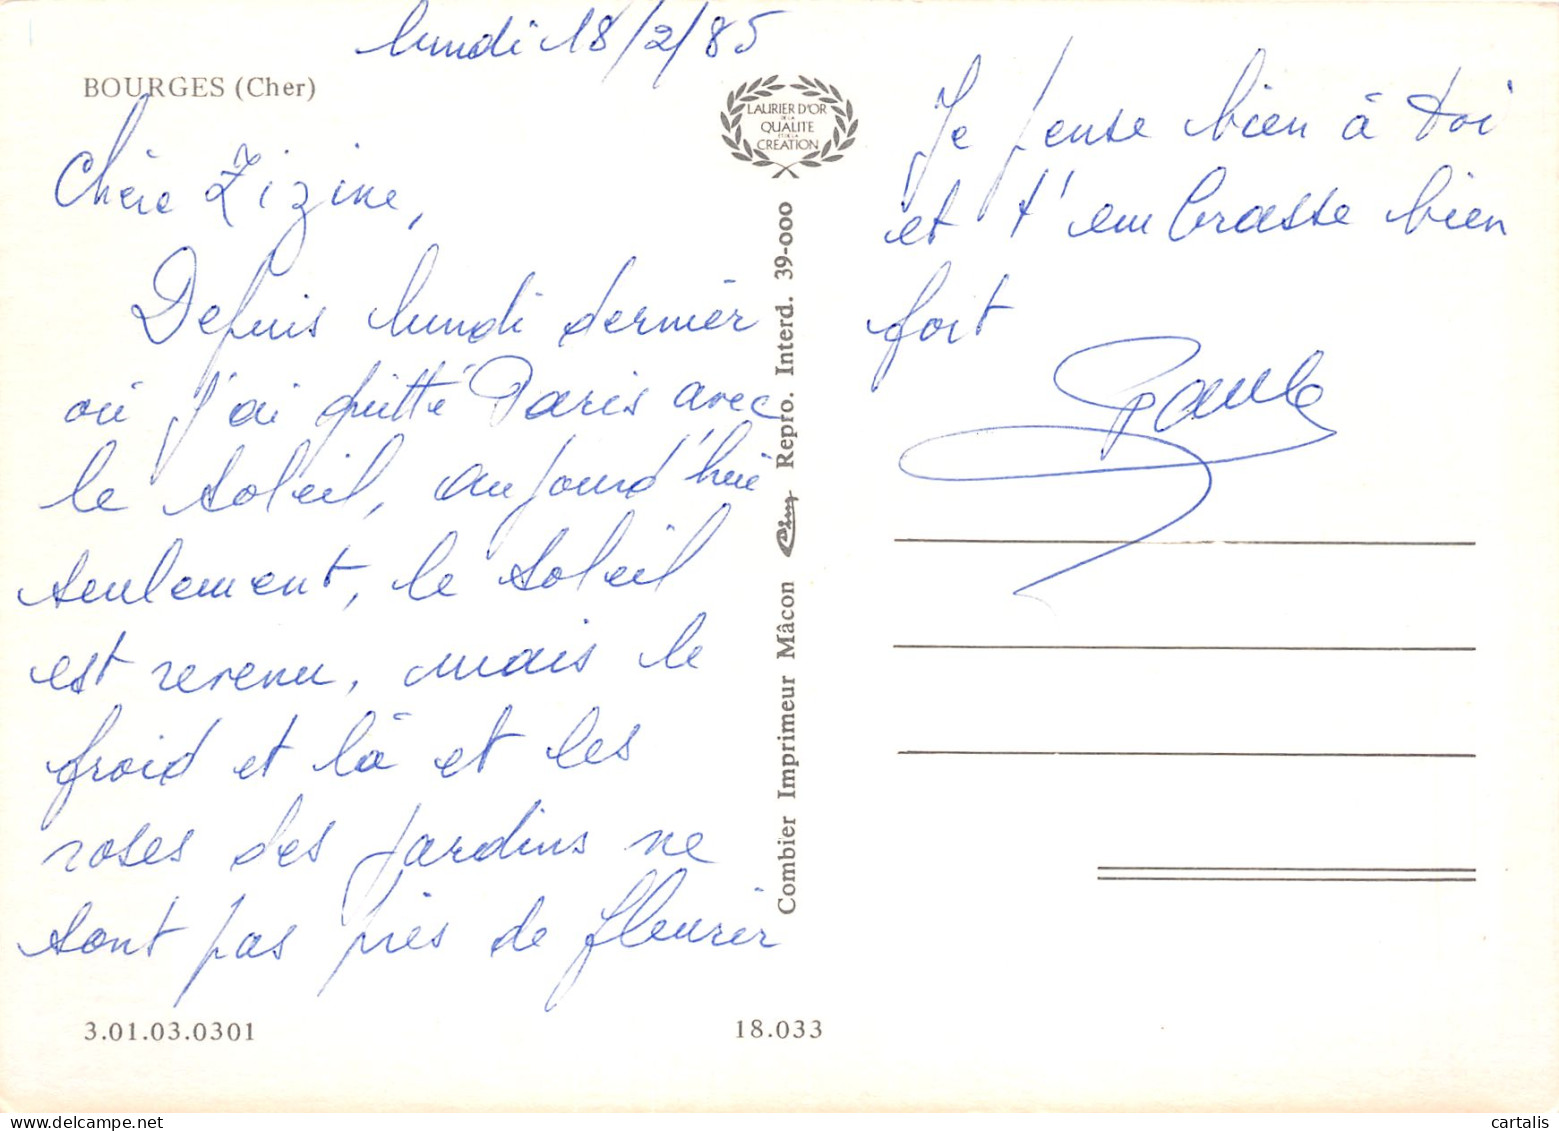 lundi 18/2/85
BOURGES (Cher)
Chère Zizine,
Depuis lundi dernier
où j'ai quitté Paris avec
le soleil, aujourd'hui
seulement, le soleil
est revenu, mais le
froid et là et les
roses des jardins ne
sont pas près de fleurir
3.01.03.0301
18.033
LAURIER D'OR
DE LA
QUALITE
ET DE LA
CREATION
Combier Imprimeur Mâcon Cim Repro. Interd. 39-000
Je pense bien à toi
et t'embrasse bien
fort
Paule
cartalis